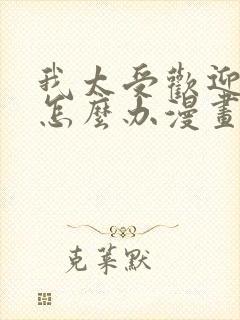 我太受歡迎
怎麼办漫畫
克萊默